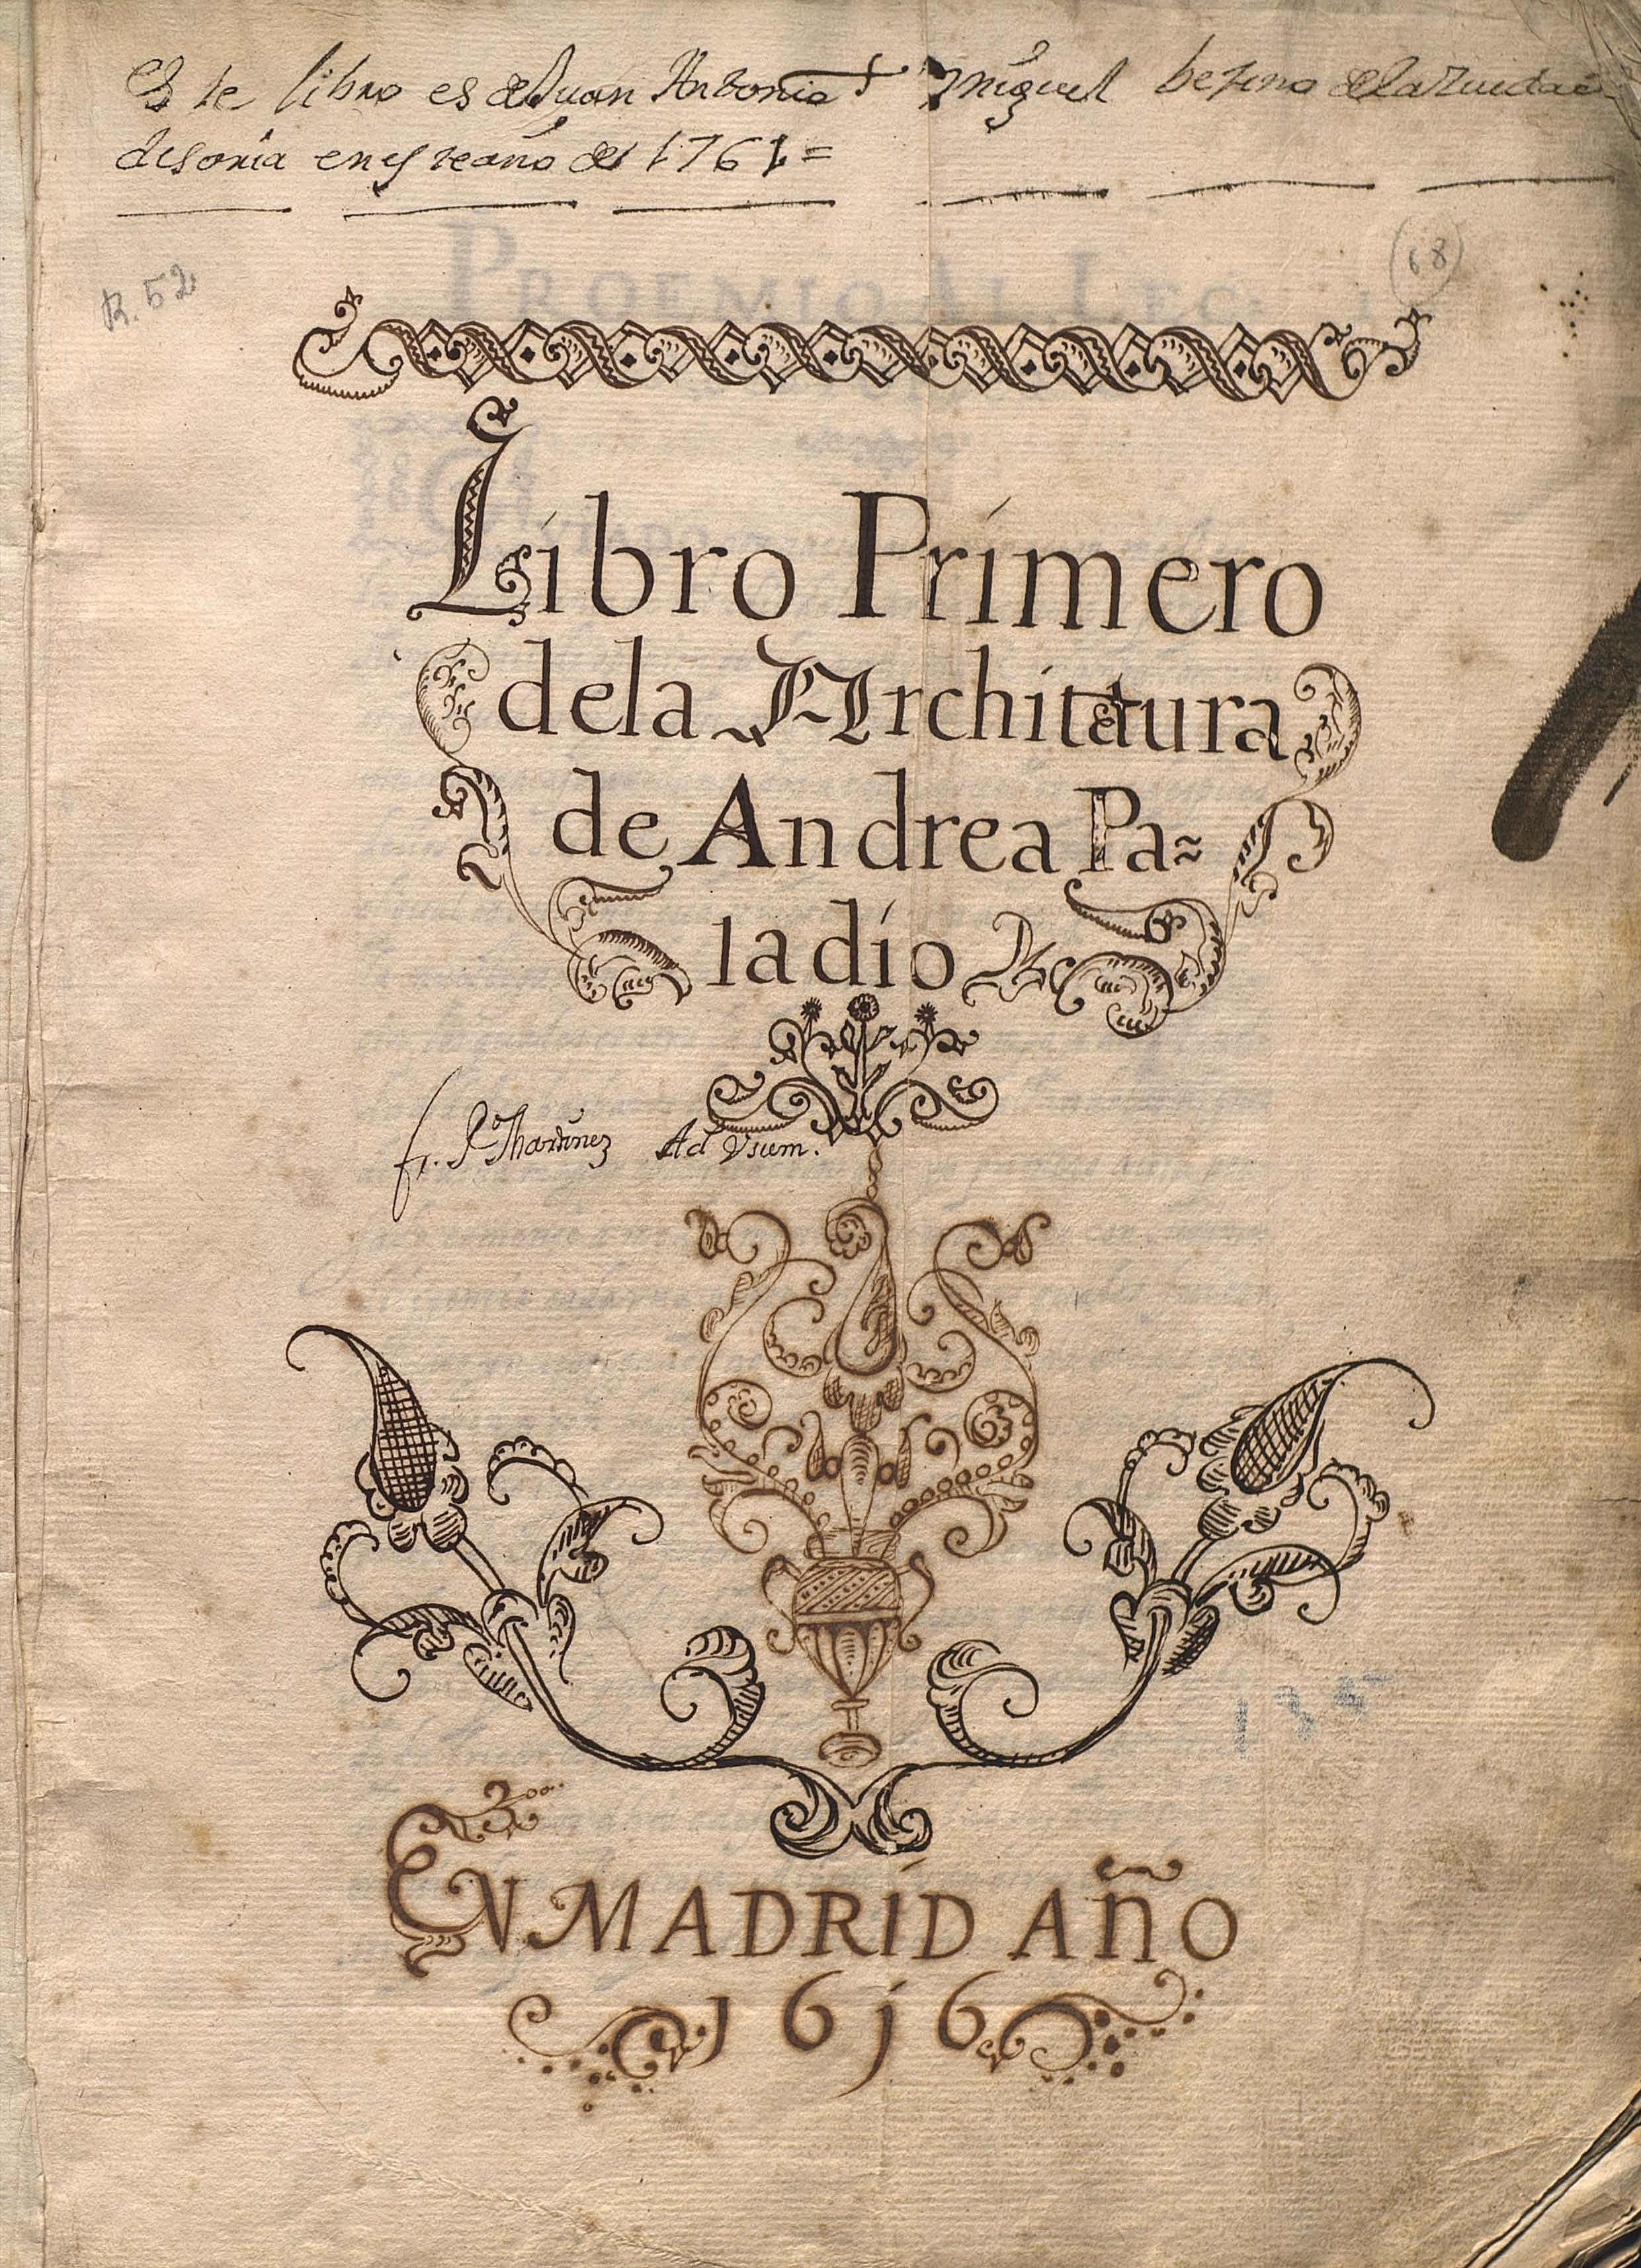 Este libro es de Juan Antonio Miguel bezino de la Ziudad
de soria en este año de 1761=
R. 52
68
Libro Primero
dela Architectura
de Andrea Pa~
ladio
fr. P.º Martinez Ad Vsum.
EN MADRID AÑO
1616